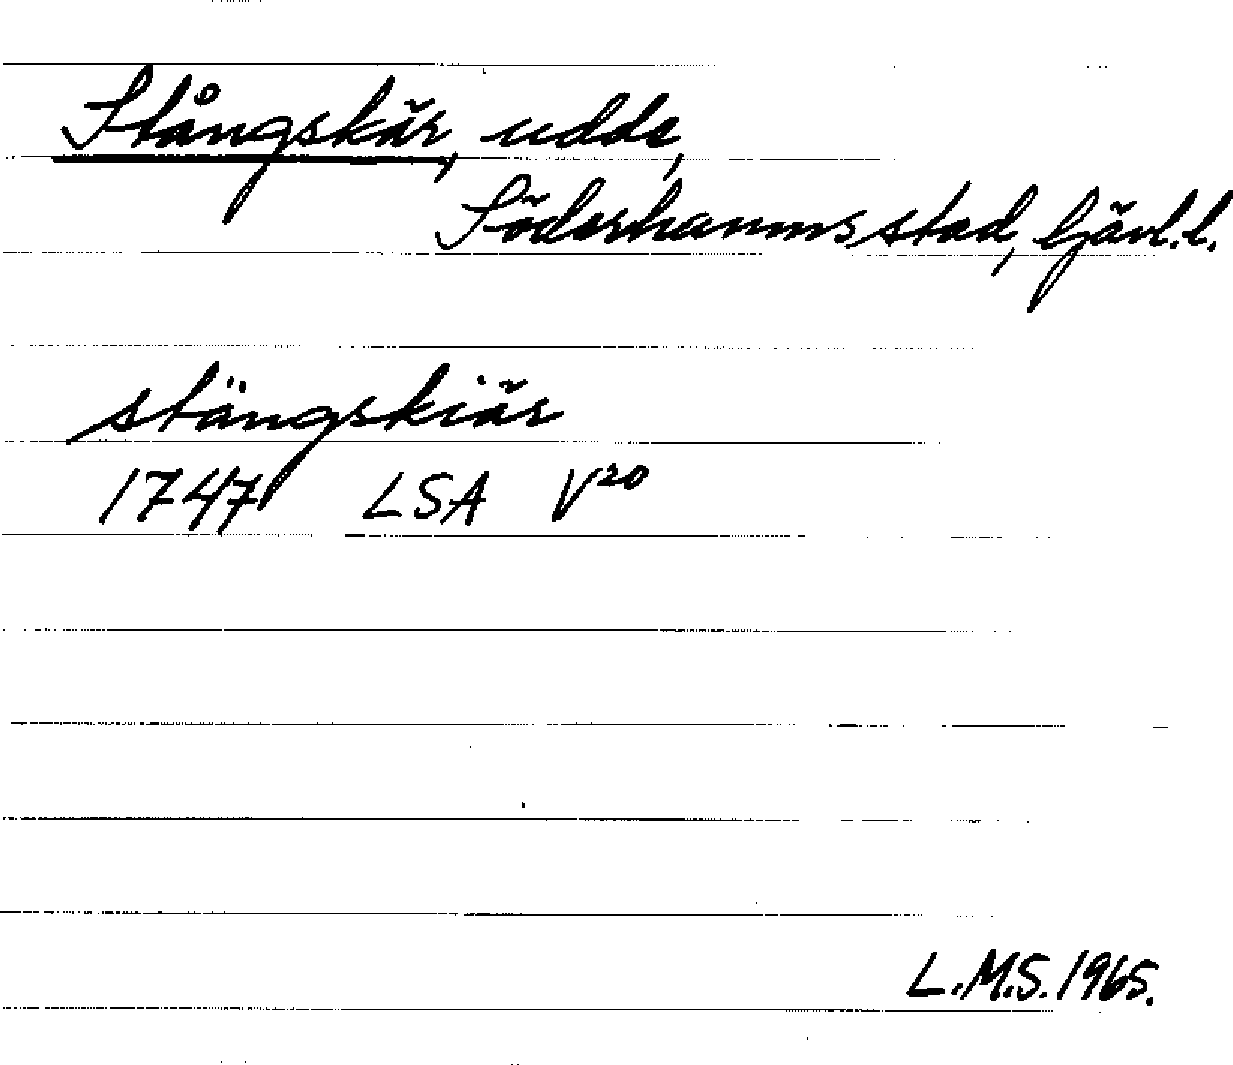 Stångskär, udde,
Söderhamns stad, Gävl.l.
stängskiär
1747 LSA V20
L.M.S. 1965.